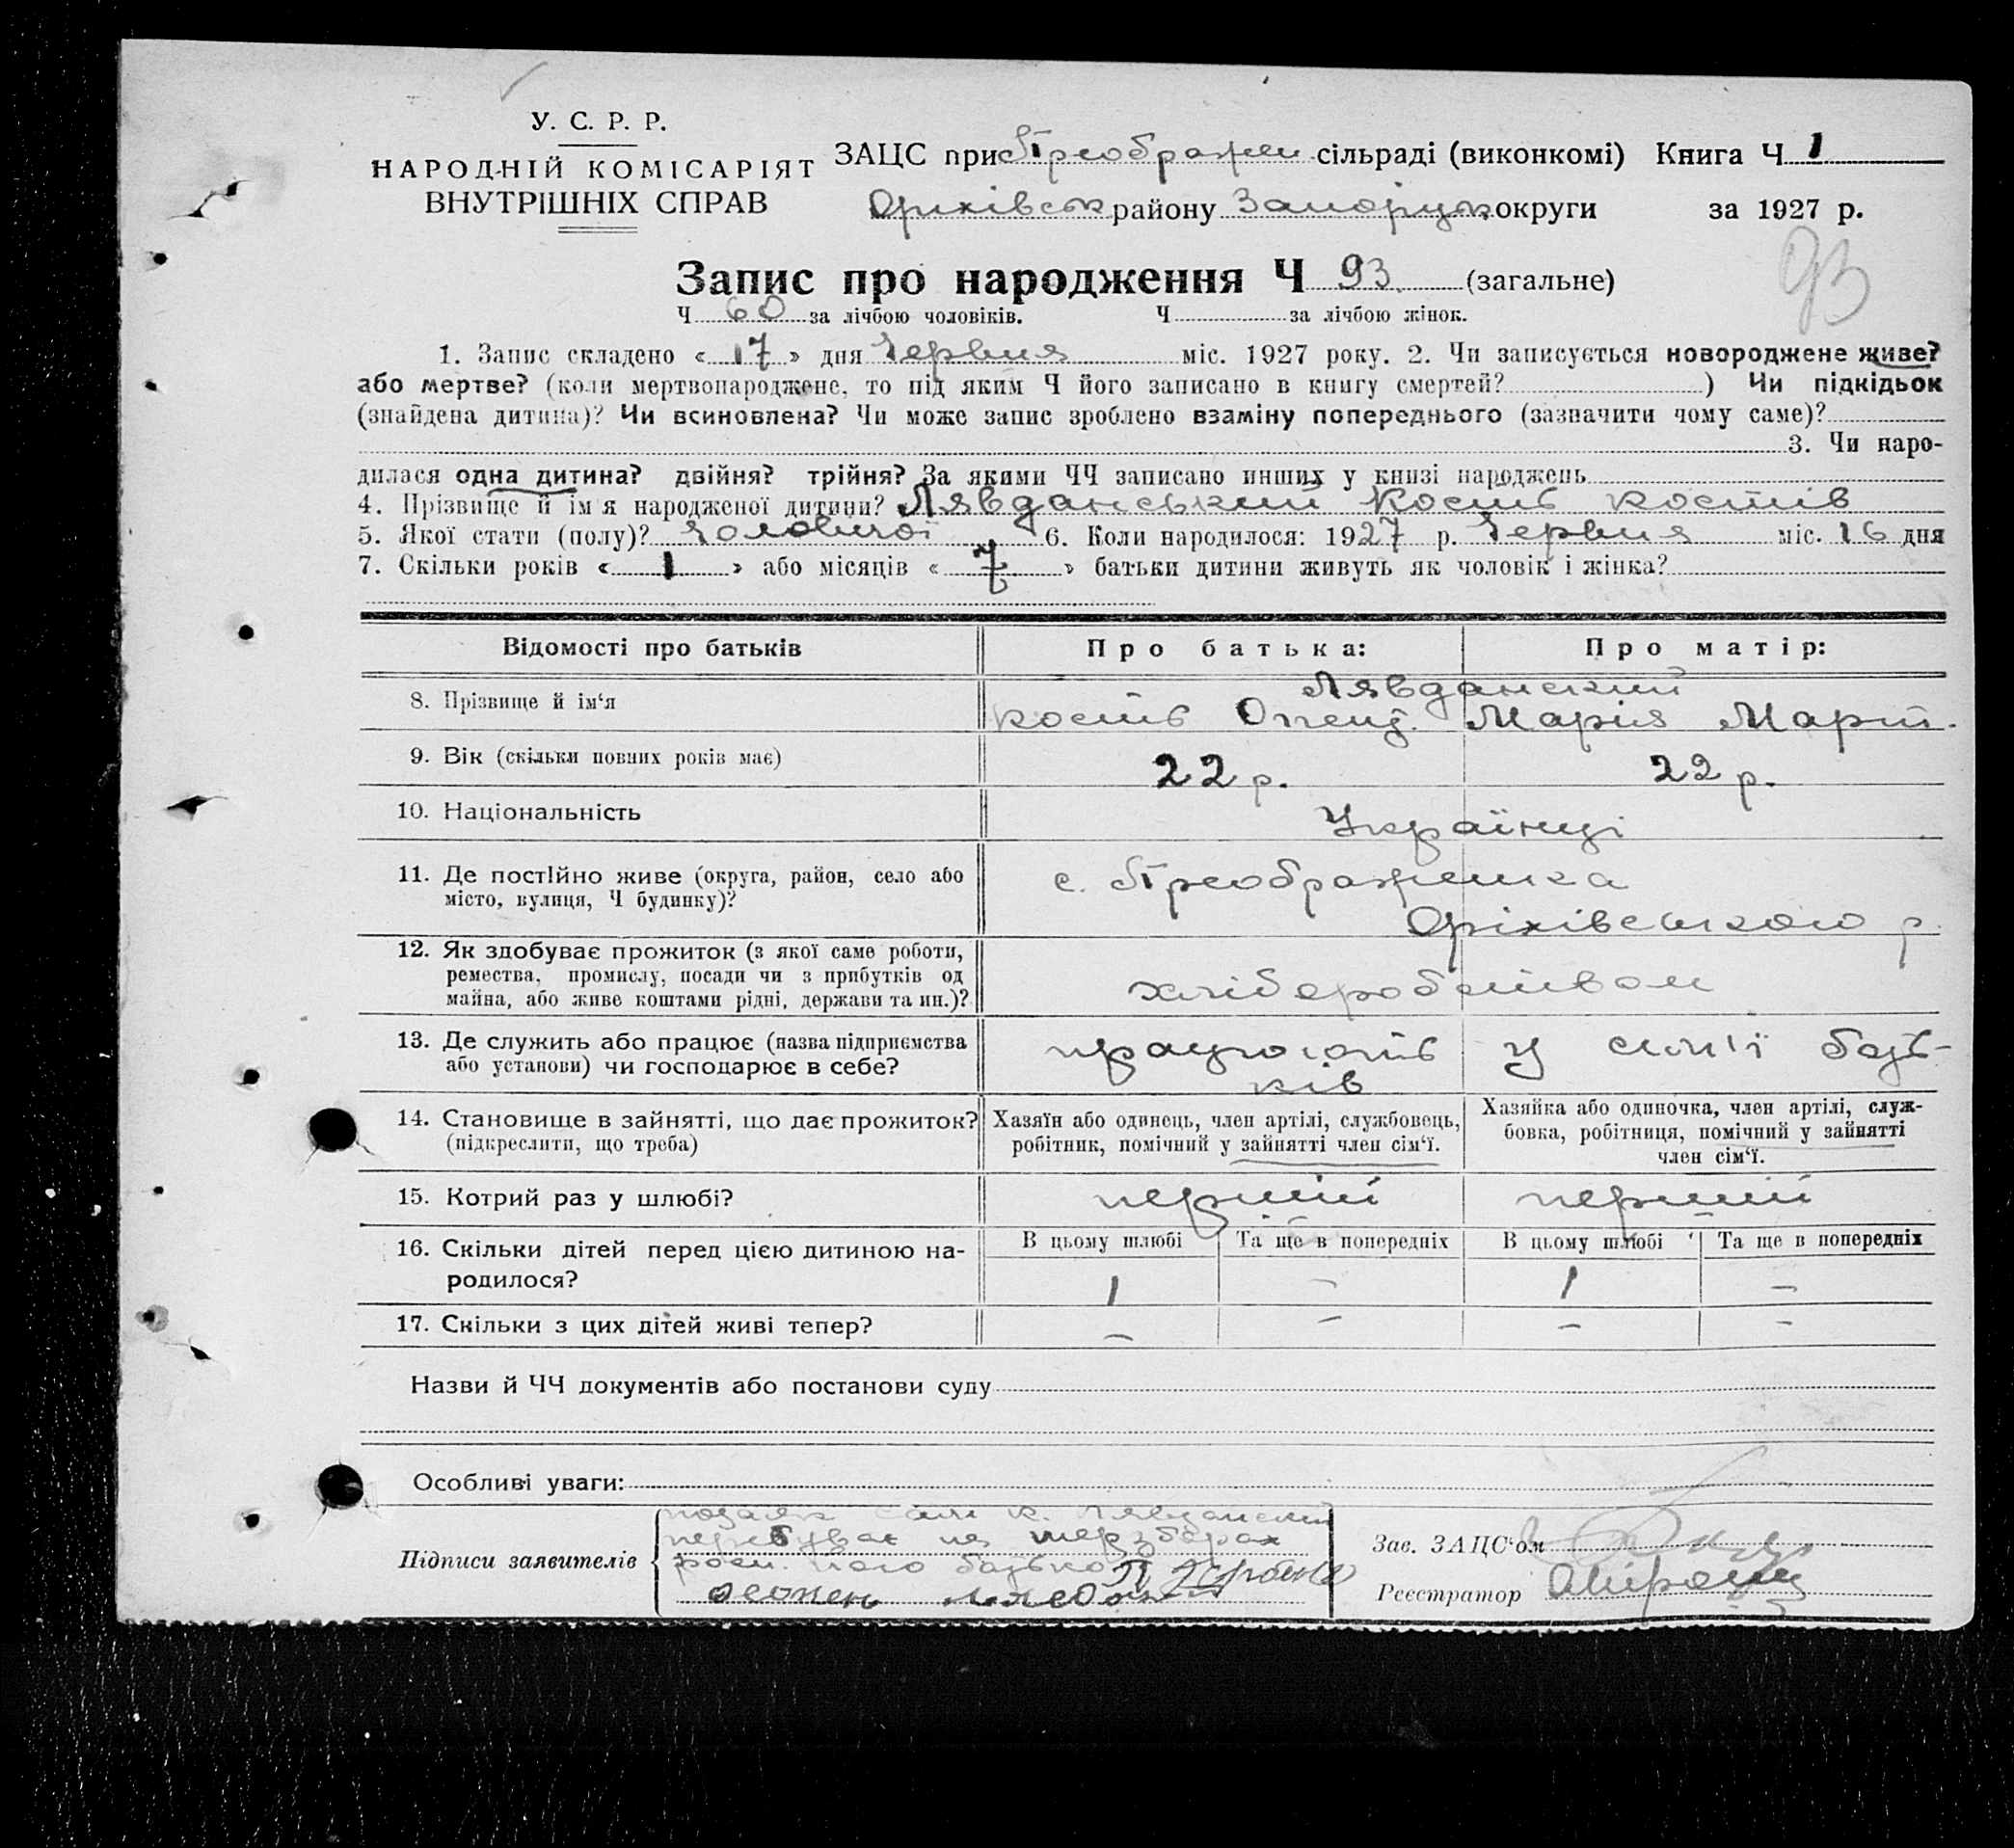 У. С. Р. Р.
НАРОДНІЙ КОМІСАРІЯТ
ВНУТРІШНІХ СПРАВ
ЗАЦС при Преображен сільраді (виконкомі) Книга Ч 1
Оріхівськ району Запоріжськ округи за 1927 р.
93
Запис про народження Ч 93 (загальне)
Ч 60 за лічбою чоловіків. Ч за лічбою жінок.
1. Запис складено « 17 » дня Червня міс. 1927 року. 2. Чи записується новороджене живе?
або мертве? (коли мертвонароджене, то під яким Ч його записано в книгу смертей? ) Чи підкідьок
(знайдена дитина)? Чи всиновлена? Чи може запис зроблено взаміну попереднього (зазначити чому саме)?
3. Чи наро-
дилася одна дитина? двійня? трійня? За якими ЧЧ записано инших у книзі народжень
4. Прізвище й ім'я народженої дитини? Лявданський Кость Костів
5. Якої стати (полу)? Чоловічої 6. Коли народилося: 1927 р. Червня міс. 16 дня
7. Скільки років « 1 » або місяців « 7 » батьки дитини живуть як чоловік і жінка?
Відомості про батьків Про батька: Про матір:
Лявданский
8. Прізвище й ім‘я Кость Опеng. Марія Март.
9. Вік (скільки повних років має) 22 р. 22 р.
10. Національність Українці
11. Де постійно живе (округа, район, село або місто, вулиця, Ч будинку)? с. Преображенка
Оріхівського р.
12. Як здобуває прожиток (з якої саме роботи,
ремества, промислу, посади чи з прибутків од
майна, або живе коштами рідні, держави та ин.)? хліборобством
13. Де служить або працює (назва підприємства
або установи) чи господарює в себе? працюють у сем'ї бать-
ків
14. Становище в зайнятті, що дає прожиток?
(підкреслити, що треба)
Хазяїн або одинець, член артілі, службовець,
робітник, помічний у зайнятті член сім‘ї.
Хазяйка або одиночка, член артілі, служ-
бовка, робітниця, помічний у зайнятті
член сім‘ї.
15. Котрий раз у шлюбі? перший перший
16. Скільки дітей перед цією дитиною на-
родилося?
В цьому шлюбі Та ще в попередніх В цьому шлюбі Та ще в попередніх
1 – 1 –
17. Скільки з цих дітей живі тепер? – – – –
Назви й ЧЧ документів або постанови суду
Особливі уваги:
Підписи заявителів
позаяк сам К. Лявданский
перебуває на терзборах
його батько
Зав. ЗАЦС‘ом
Реєстратор